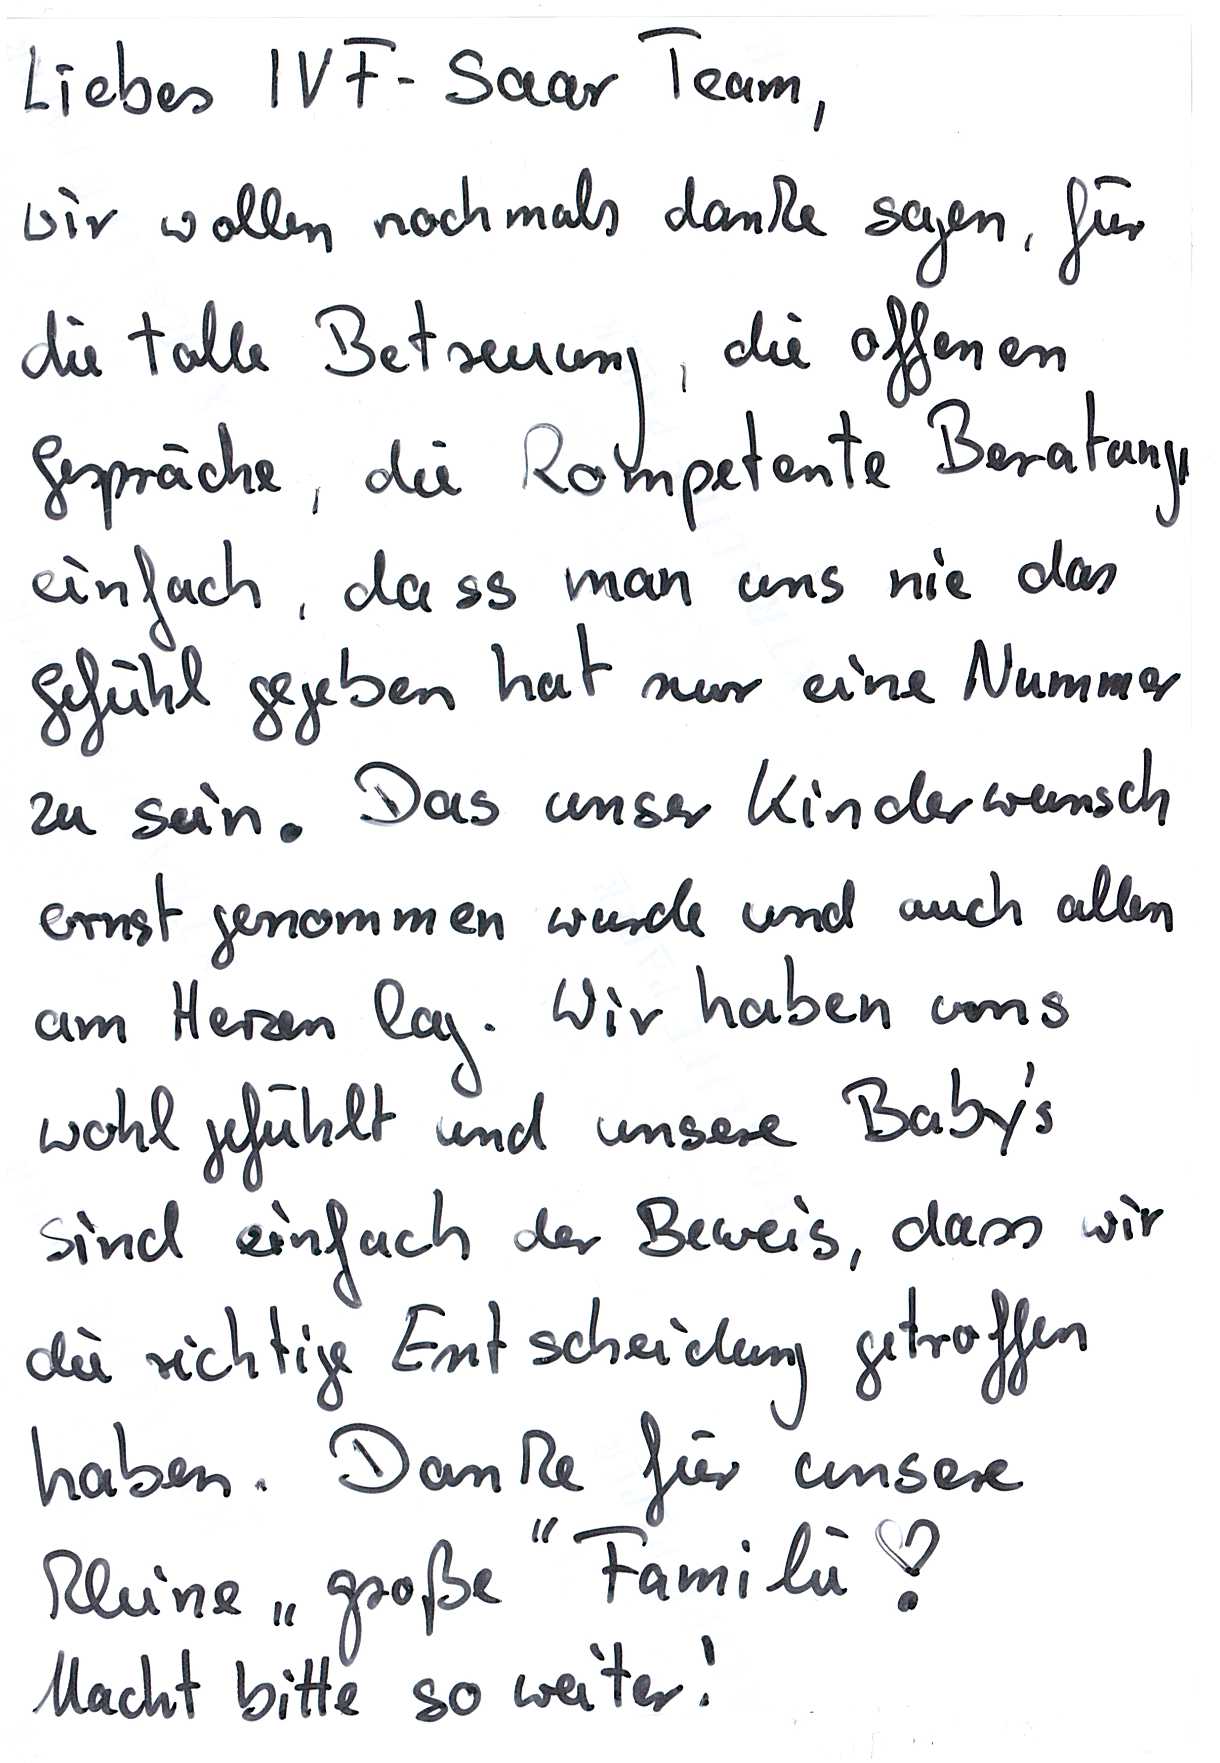 Liebes IVF-Saar Team,
wir wollen nochmals danke sagen, für
die tolle Betreuung, die offenen
Gespräche, die kompetente Beratung,
einfach, dass man uns nie das
Gefühl gegeben hat nur eine Nummer
zu sein. Das unser Kinderwunsch
ernst genommen wurde und auch allen
am Herzen lag. Wir haben uns
wohl gefühlt und unsere Baby's
sind einfach der Beweis, dass wir
die richtige Entscheidung getroffen
haben. Danke für unsere
kleine „große“ Familie ♡!
Macht bitte so weiter!